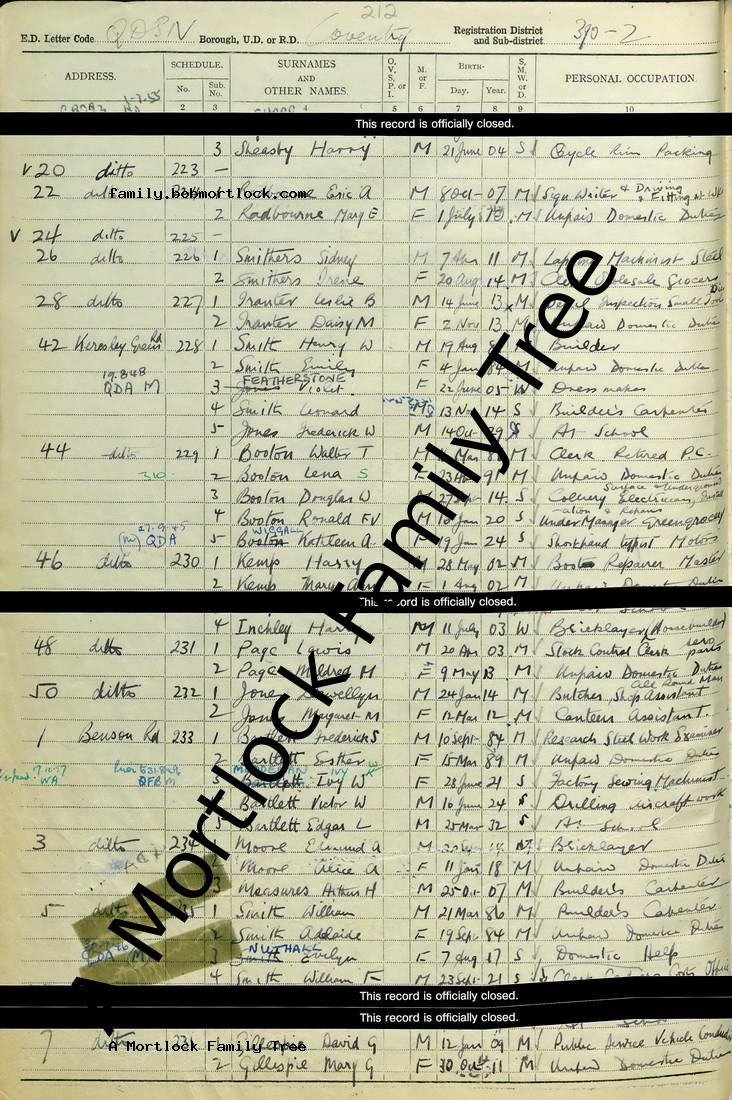 212
E.D. Letter Code QDSN Borough, U.D. or R.D. Coventry Registration District and Sub-district 390-2
ADDRESS. SCHEDULE. No. Sub. No. SURNAMES AND OTHER NAMES. O, V, S, P, or I. M. or F. BIRTH- Day. Year. S, M, W, or D. PERSONAL OCCUPATION.
2 3 5 6 7 8 9 10
This record is officially closed.
3 Sheasby Harry M 21 June 04 S Cycle Rim Packing
V 20 ditto 223 —
family.bobmortlock.com
22 Eric A M 8 Oct 07 M Sign Writer & Driving & Fitting
2 Radbourne Mary E F 1 July 13 M Unpaid Domestic Duties
V 24 ditto 225 —
26 ditto 226 1 Smithers Sidney M 7 Apr 11 M Machinist Steel
2 Smithers Irene F 20 Aug 14 M Wholesale Grocers
28 ditto 227 1 Tranter Leslie B M 14 June 13 M Inspection Small Tools
2 Tranter Daisy M F 2 Nov 13 M Unpaid Domestic Duties
42 Keresley Green Rd 228 1 Smith Henry W M 19 Aug M Builder
2 Smith Emily F 4 Jan 84 M Unpaid Domestic Duties
19.8.48 FEATHERSTONE
QDA M 3 Jones Violet F 22 June 05 W Dressmaker
4 Smith Leonard M 13 Nov 14 S Builder's Carpenter
5 Jones Frederick W M 14 Oct 29 S At School
44 ditto 229 1 Booton Walter T M Mar M Clerk Retired P.C.
310 2 Booton Lena S F 23 91 M Unpaid Domestic Duties
3 Booton Douglas W M 27 Sept 14 S Colliery Electrician, Surface & Underground
4 Booton Ronald FV M 10 Jan 20 S Under Manager Greengrocery
27.9.45 WIGGALL
(M) QDA 5 Booton Kathleen A F 19 Jan 24 S Shorthand Typist Motors
46 ditto 230 1 Kemp Harry M 28 May 02 M Boot Repairer Master
2 Kemp Mary Ann F 1 Aug 02 M Unpaid Domestic Duties
This record is officially closed.
4 Inchley Harry M 11 July 03 W Bricklayer (Housebuilder)
48 ditto 231 1 Page Lewis M 20 Apr 03 M Stock Control Clerk aero parts
2 Page Mildred M F 9 May 13 M Unpaid Domestic Duties
50 ditto 232 1 Jones Llewellyn M 24 Jan 14 M Butcher Shop Assistant All Round Man
2 Jones Margaret M F 12 Mar 12 M Canteen Assistant.
1 Benson Rd 233 1 Bartlett Frederick S M 10 Sept 84 M Research Steel Work Examiner
2 Bartlett Esther F 15 Mar 89 M Unpaid Domestic Duties
7.10.57 WA QFB M IVY
3 Bartlett Ivy W F 28 June 21 S Factory Sewing Machinist
Bartlett Victor W M 16 June 24 S Drilling aircraft work
5 Bartlett Edgar L M 25 Mar 32 S At School
3 ditto 234 Moore M Bricklayer
2 Moore Alice A F 11 Jan 18 M Unpaid Domestic Duties
3 Measures Arthur H M 25 Oct 07 M Builder's Carpenter
5 ditto 1 Smith William M 21 Mar 86 M Builder's Carpenter
2 Smith Adelaide F 19 Sept 84 M Unpaid Domestic Duties
NUTHALL
QDA (M) 3 Smith Evelyn F 7 Aug 17 S Domestic Help
4 Smith William F M 23 Sept 21 S Clerk
This record is officially closed.
This record is officially closed.
7 ditto 1 Gillespie David G M 12 Jan 09 M Public Service Vehicle Conductor
A Mortlock Family Tree
2 Gillespie Mary G F 30 Oct 11 M Unpaid Domestic Duties
A Mortlock Family Tree